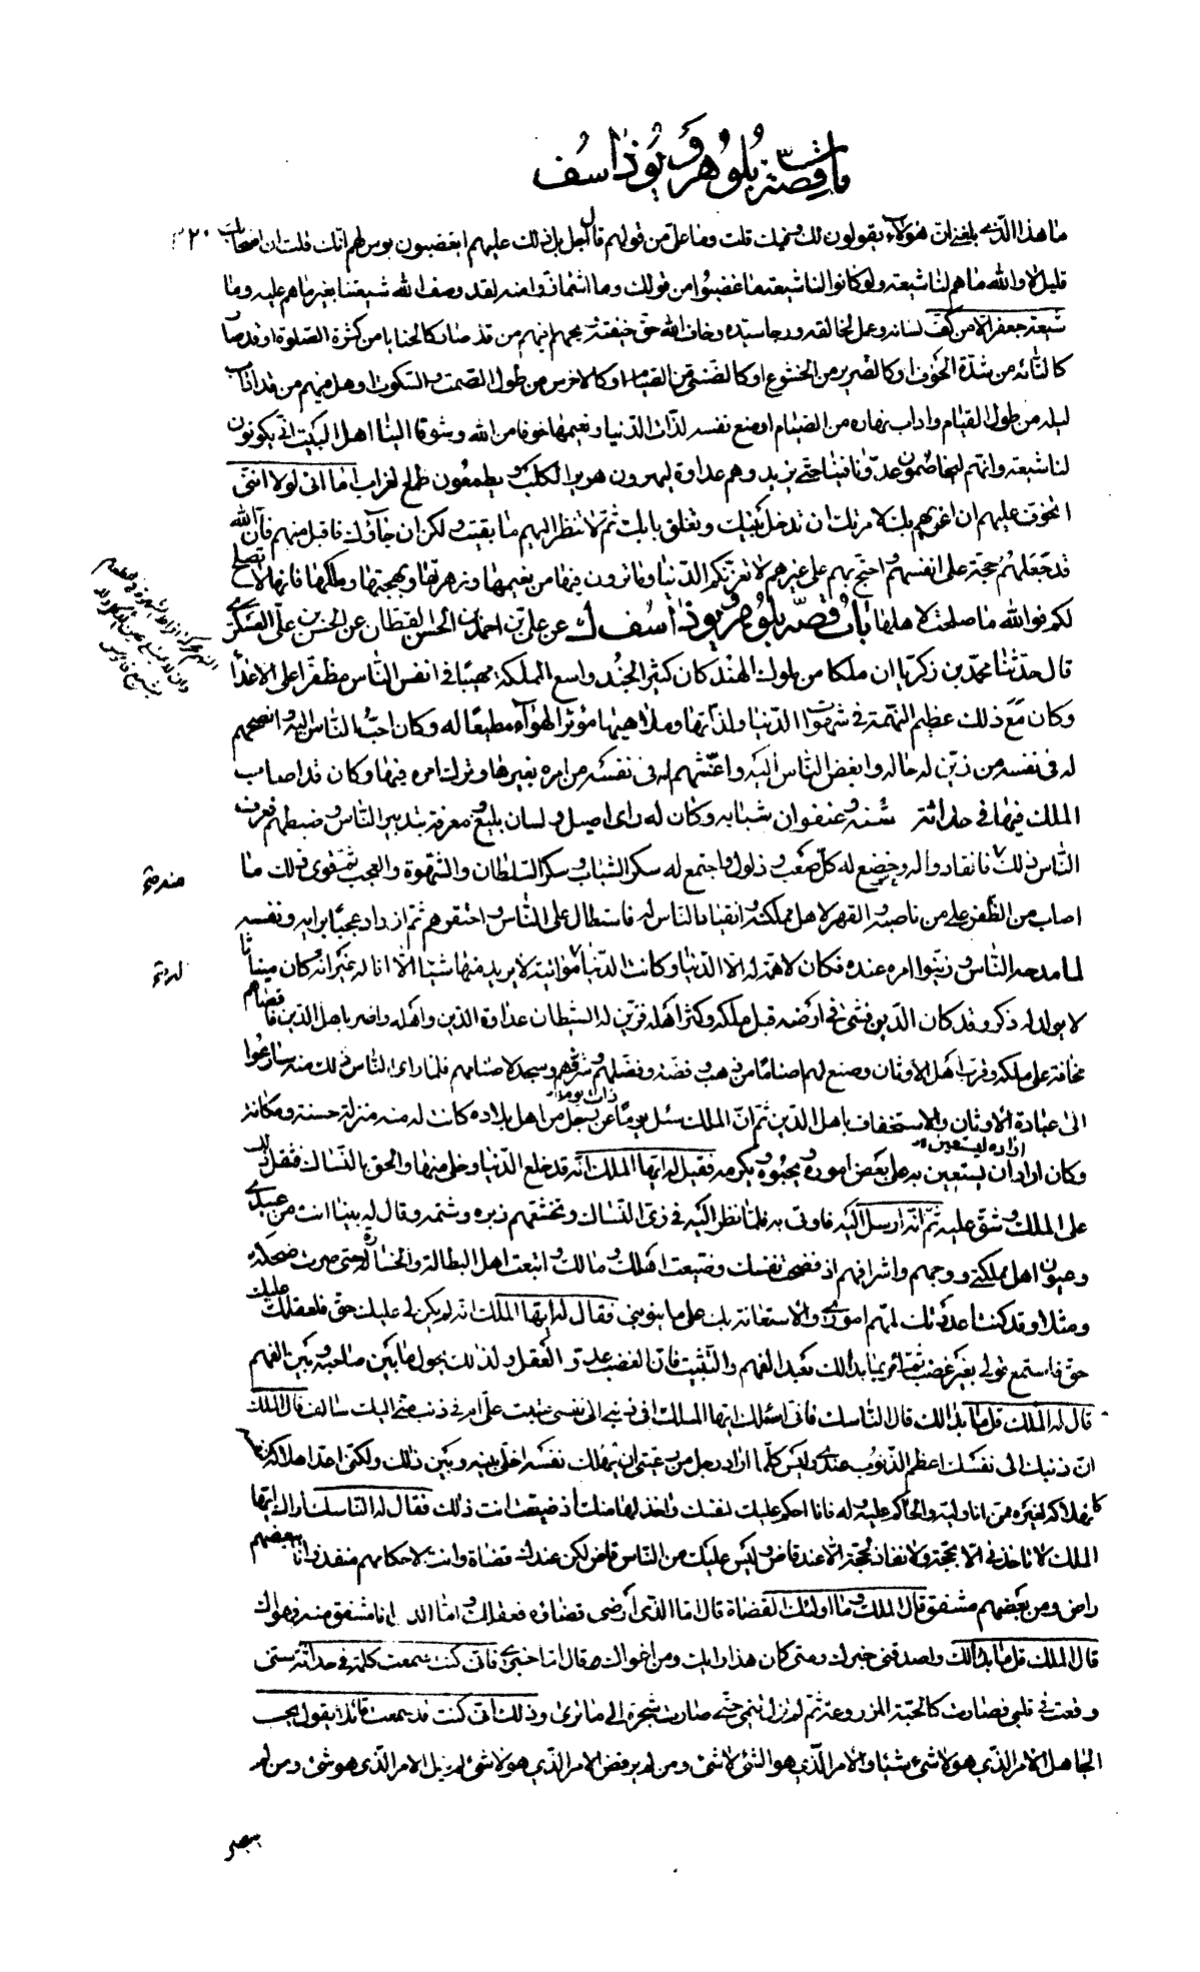 باب قصّة بُلُوهر وَيُوذاسُف
ما هذا الّذى بلغنى ان هؤلاء يقولون لك وفيك قلت وما علىّ من قولهم قال اجل بل ذلك عليهم ايغضبون بؤس لهم انك قلت ان اصحابك
قليل لا والله ما هم لنا شيعة ولو كانوا لنا شيعة ما غضبوا من قولك وما اشمأزّوا منه لقد وصف الله شيعتنا بغير ما هم عليه وما
شيعة جعفر الا من كفّ لسانه وعمل لخالقه ورجا سيّده وخاف الله حق خيفته ويحهم افيهم من قد صار كالحنايا من كثرة الصّلوة او قد صار
كالتّائه من شدّة الخوف او كالضّرير من الخشوع او كالضّنى من الصّيام او كالاخرس من طول الصّمت والسّكوت او هل فيهم من قد اداب
ليله من طول القيام واداب نهاره من الصّيام او منع نفسه لذّات الدّنيا ونعيمها خوفا من الله وشوقا الينا اهل البيت انّى يكونون
لنا شيعة وانهم ليخاصمون عدوّنا فينا حتى يزيدوهم عداوة ليهرون هرير الكلب ويطمعون طمع الغراب اما انى لولا اننى
اتخوّف عليهم ان اغريهم بك لامرتك ان تدخل بيتك وتغلق بابك ثمّ لا تنظر اليهم ما بقيت ولكن ان جاؤك فاقبل منهم فان الله
قد جعلهم حجّة على انفسهم واحتجّ بهم على غيرهم لا تغرّنّكم الدّنيا وما ترون فيها من نعيمها وزهرتها وبهجتها وملكها فانها لا تصلح
لكم فوالله ما صلحت لاهلها باب قصّه بلوهر ويوذاسف ك عن علىّ بن احمد بن الحسن القطان عن الحسن بن علىّ العسكرى
قال حدّثنا محمد بن زكريا ان ملكا من ملوك الهند كان كثير الجند واسع المملكة مهيبا فى انفس النّاس مظفّرا على الاعداء
وكان مع ذلك عظيم النّهمة فى شهوات الدّنيا ولذّاتها وملاهيها مؤثرا لهواه مطيعا له وكان احبّ النّاس اليه وانصحهم
له فى نفسه من زيّن له حاله وابغض النّاس اليه واغشّهم له فى نفسه من امره بغيرها وترك امره فيها وكان قد اصاب
الملك فيها فى حداثة سنه وعنفوان شبابه وكان له راى اصيل ولسان بليغ ومعرفة بتدبير النّاس وضبطهم فعرف
النّاس ذلك فانقادوا له وخضع له كلّ صعب وذلول واجتمع له سكر الشّباب وسكر السّلطان والشّهوة والعجب ثمّ قوى ذلك ما
اصاب من الظّفر على من ناصبه والقهر لاهل مملكته وانقياد النّاس له فاستطال على النّاس واحتقرهم ثمّ ازداد عجبا برايه ونفسه
لما مدحه النّاس وزيّنوا امره عنده فكان لا همّة له الا الدّنيا وكانت الدّنيا مؤاتية لا يريد منها شيئا الا ناله غير انّه كان ميناثا
لا يولد له ذكر وقد كان الدّين فشى فى ارضه قبل ملكه وكثر اهله فزيّن له الشيطان عداوة الدّين واهله واضرّ باهل الدّين فاقصاهم
مخافة على ملكه وقرّب اهل الاوثان وصنع لهم اصناما من ذهب وفضّة وفضّلهم وشرّفهم وسجد لاصنامهم فلمّا راى النّاس ذلك منه سارعوا
الى عبادة الاوثان والاستخفاف باهل الدّين ثمّ انّ الملك سئل يوما عن رجل من اهل بلاده كانت له منه منزلة حسنة ومكانة
وكان اراد ان يستعين به على بعض اموره ويحبوه ويكرمه فقيل له ايّها الملك انّه قد خلع الدّنيا وخلى منها والحق بالنّسّاك فثقل ذلك
على الملك وشقّ عليه ثمّ انّه ارسل اليه فاوتى به فلمّا نظر اليه فى زىّ النّسّاك وتخشّعهم زبره وشتمه وقال له بينا انت من عبيدى
وعيون اهل مملكتى ووجههم واشرافهم اذ فضحت نفسك وضيّعت اهلك ومالك واتبعت اهل البطالة والخسارة حتى صرت ضحكة
ومثلا وقد كنت اعددتك لمهم امورى والاستعانة بك على ما ينوبنى فقال له ايّها الملك انّه لم يكن لى عليك حقّ فلعقلك عليك
حق فاستمع قولى بغير غضب ثمّ ائمر بما بدالك بعد الفهم والتّثبّت فانّ الغضب عدوّ العقل ولذلك يحول ما بين صاحبه وبين الفهم
قال له الملك قل ما بدالك قال النّاسك فانّى اسئلك ايّها الملك افى ذنبى الى نفسى عتبت علىّ ام فى ذنب منّى اليك سالف قال الملك
انّ ذنبك الى نفسك اعظم الذّنوب عندى وليس كلّما اراد رجل من رعيّتى ان يهلك نفسه اخلّى بينه وبين ذلك ولكنى اعدّ اهلاكه نفسه
كاهلاكه لغيره ممّن انا وليّه والحاكم عليه وله فانا احكم عليك لنفسك واخذ لها منك اذ ضيّعت انت ذلك فقال له النّاسك اراك ايّها
الملك لا تاخذنى الا بحجّة ولا نفاذ لحجّة الا عند قاض وليس عليك من النّاس قاض لكن عندك قضاة وانت لاحكامهم منفذ وانا ببعضهم
راض ومن بعضهم مشفق قال الملك وما اولئك القضاة قال امّا الّذى ارضى قضائه فعقلك وامّا الّذى انا مشفق منه فهواك
قال الملك قل ما بدالك واصدقنى خبرك ومتى كان هذا رايك ومن اغواك قال امّا خبرى فانّى كنت سمعت كلمة فى حداثة سنّى
وقعت فى قلبى فصارت كالحبّة المزروعة ثمّ لم تزل تنمى حتى صارت شجرة الى ما ترى وذلك انّى كنت قد سمعت قائلا يقول يحسب
الجاهل الامر الّذى هو لا شىء شيئا والامر الّذى هو الشّىء لا شىء ومن لم يرفض الامر الّذى هو لا شىء لم ينل الامر الّذى هو شىء ومن لم
يبصر